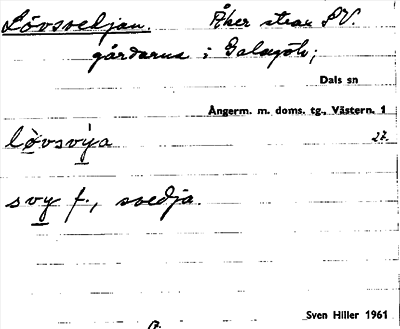 Lövsveljan. Åker strax SV.
gårdarna i Galasjö;
Dals sn
Ångerm. m. doms. tg., Västern. 1
lòvsvýa 27.
svy f., svedja.
Sven Hiller 1961